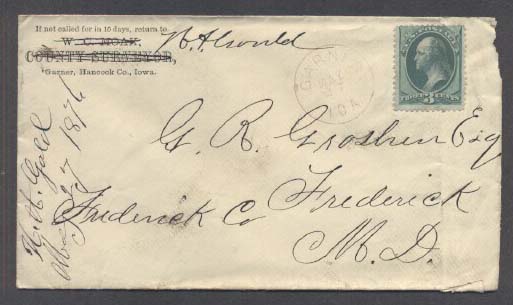 If not called for in 10 days, return to
W. C. MOAK,
COUNTY SURVEYOR,
Garner, Hancock Co., Iowa.
IOA
G. R. Groshon Esq
Frederick
Frederick Co
M. D.
May 27 1876